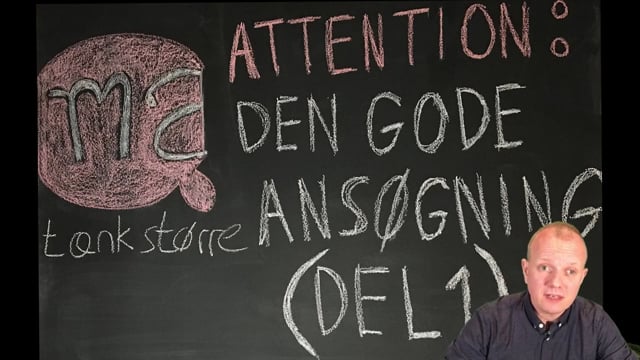 ma
tænk større
ATTENTION:
DEN GODE
ANSØGNING
(DEL 1)